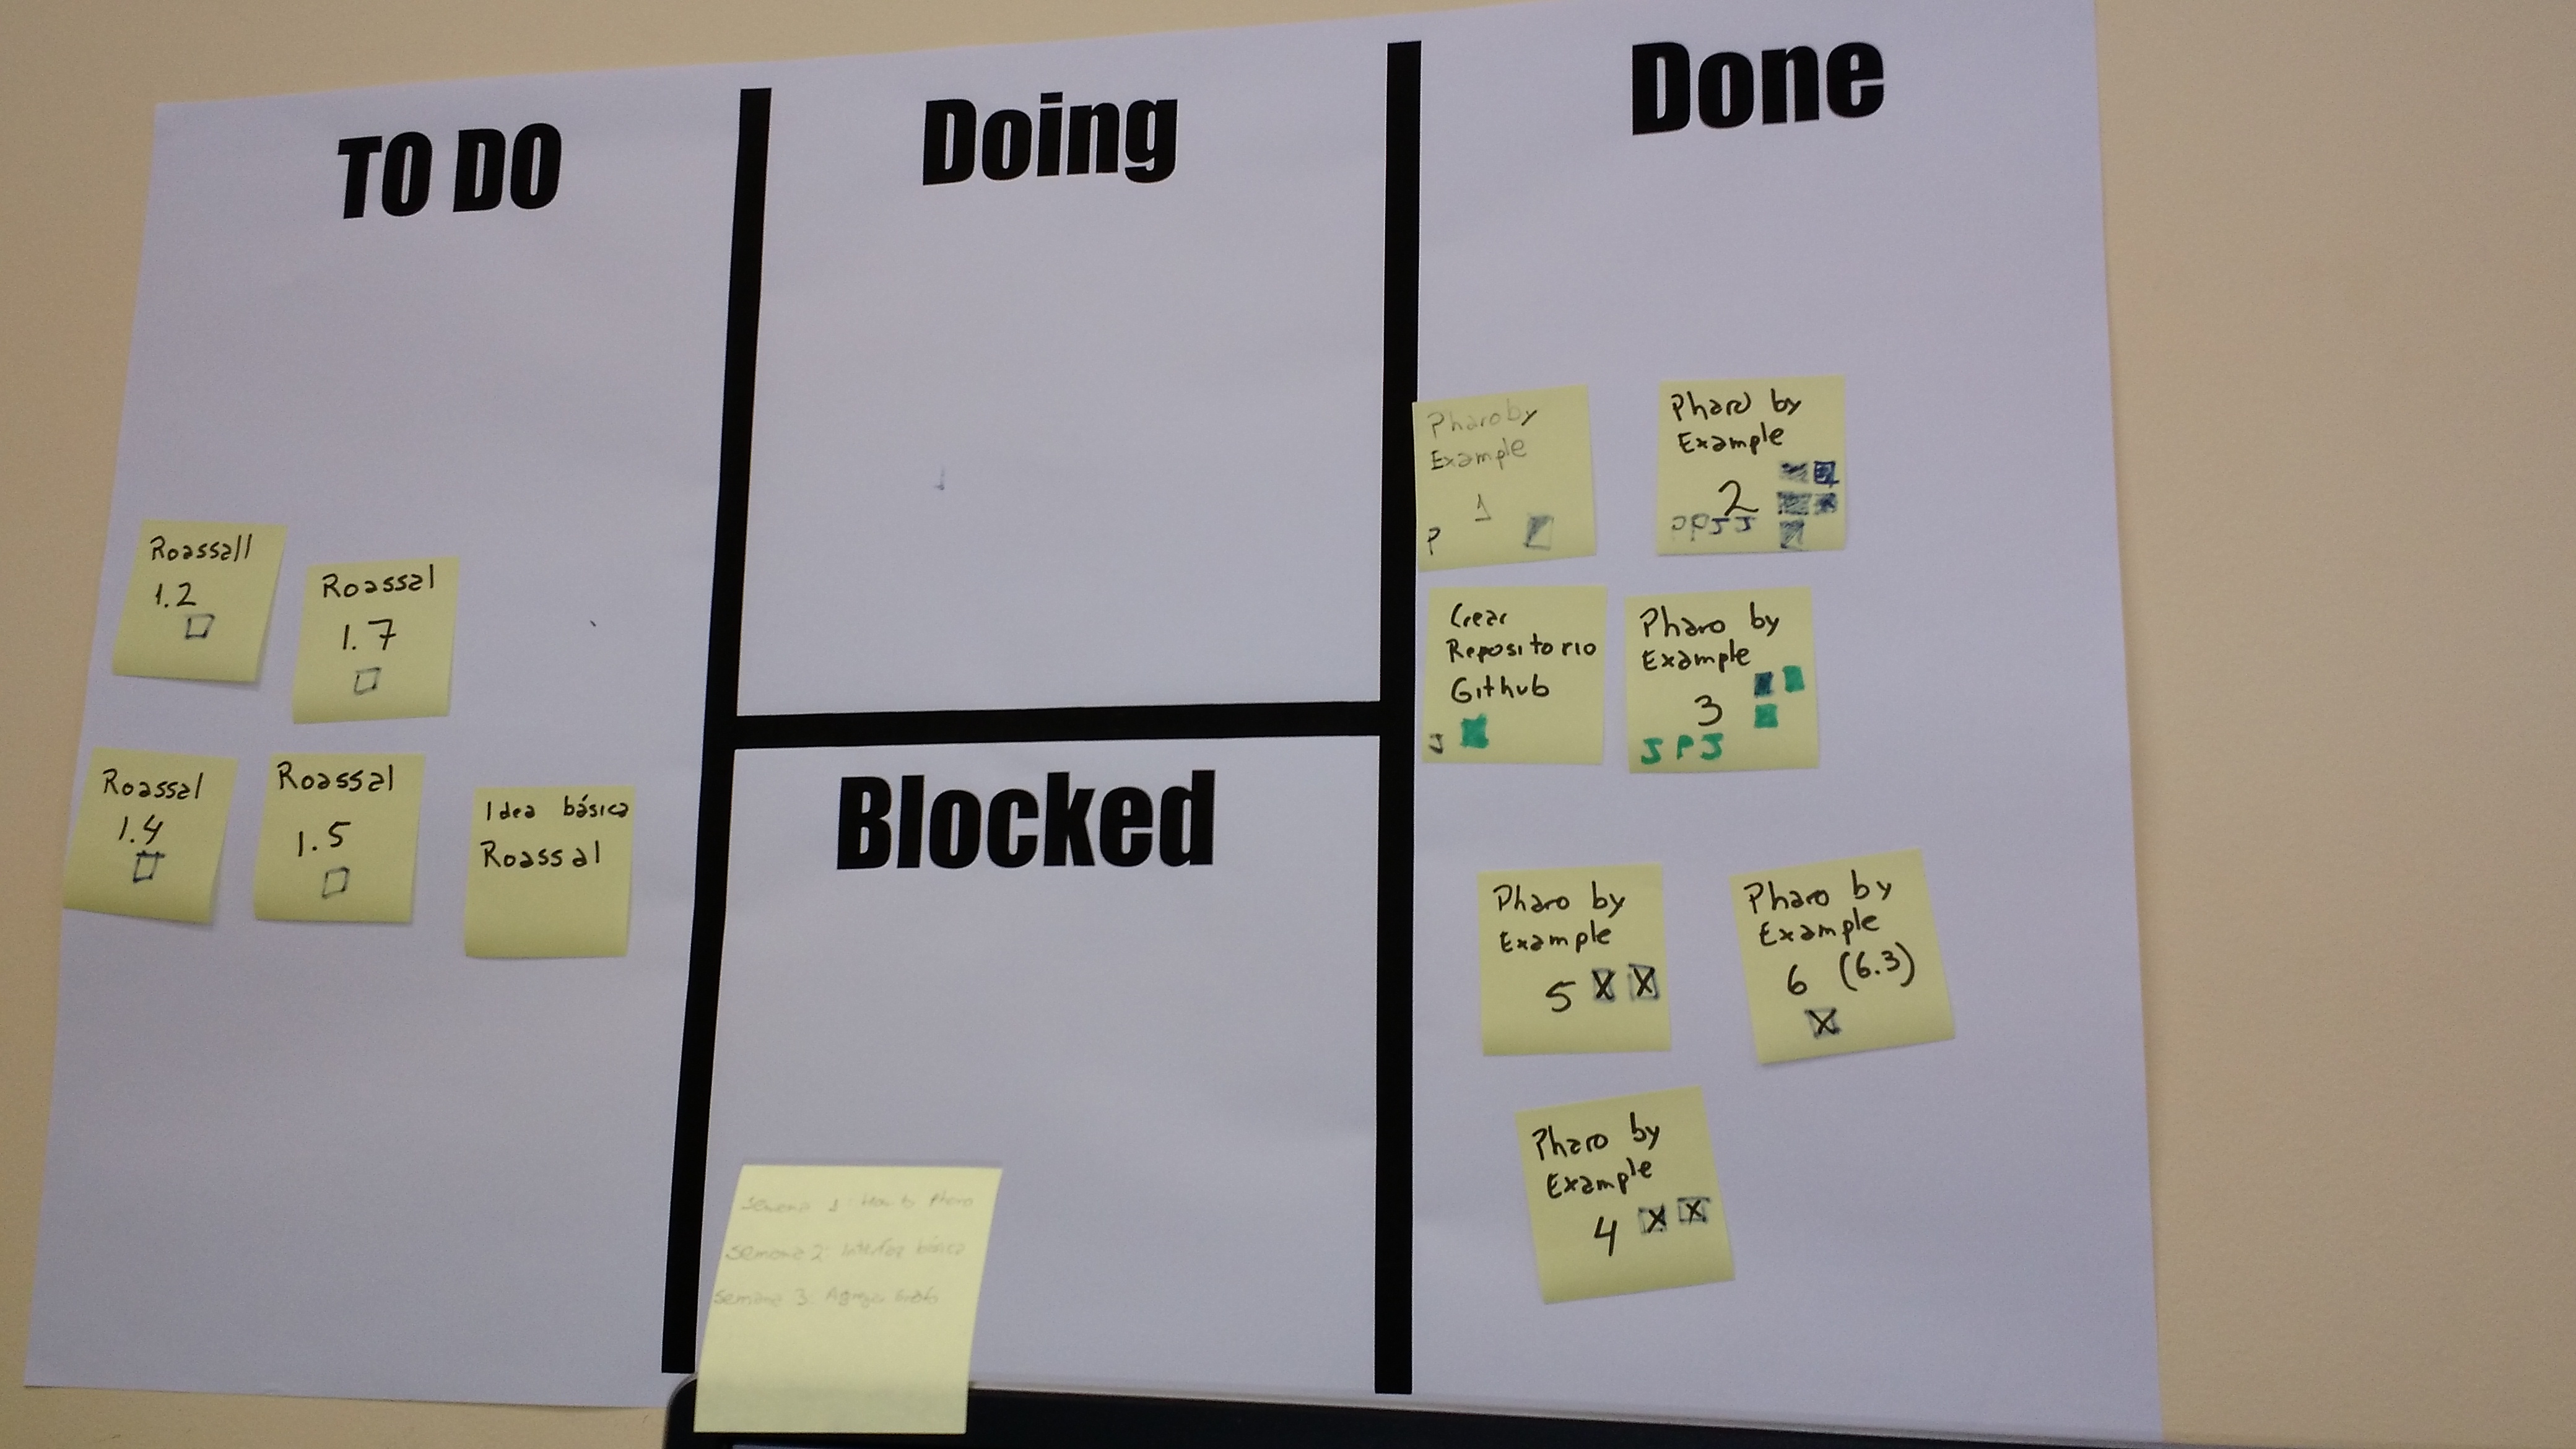 TO DO
Doing
Done
Roassall
1.2
Roassal
1.7
Roassal
1.4
Roassal
1.5
Idea básica
Roassal
Blocked
Semana 1
Pharo
Semana 2: Interfaz básica
Semana 3: Agregar
Pharo by
Example
1
P
Pharo by
Example
2
PPJJ
Crear
Repositorio
Github
J
Pharo by
Example
3
J P J
Pharo by
Example
5 X X
Pharo by
Example
6 (6.3)
X
Pharo by
Example
4 X X